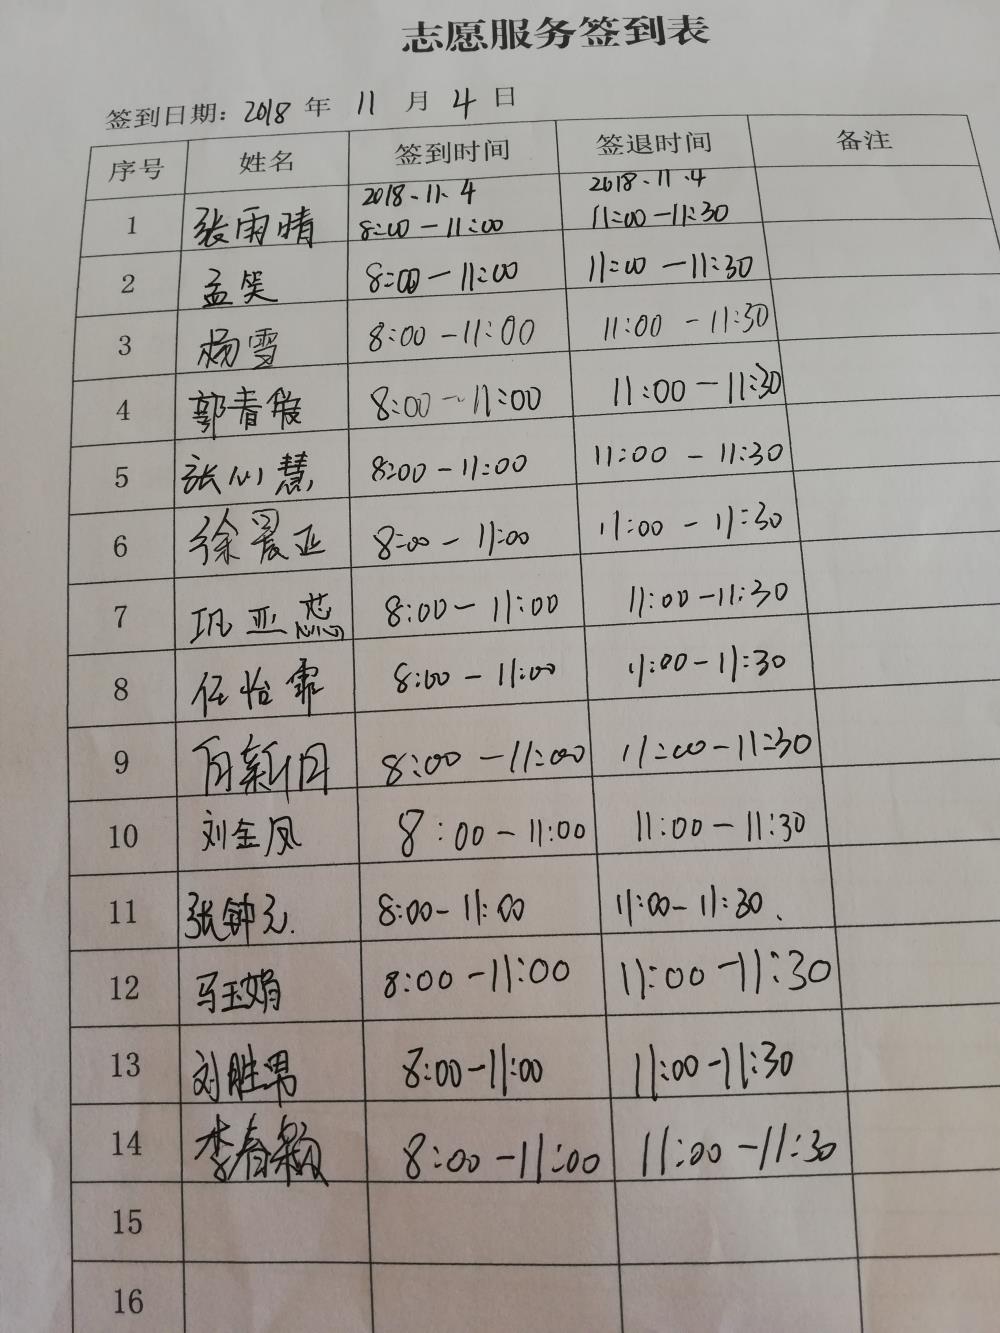 志愿服务签到表
签到日期: 2018 年 11 月 4 日
序号 姓名 签到时间 签退时间 备注
1 张雨晴 2018.11.4 8:00-11:00 2018.11.4 11:00-11:30
2 孟笑 8:00-11:00 11:00-11:30
3 杨雪 8:00-11:00 11:00-11:30
4 郭青霞 8:00-11:00 11:00-11:30
5 张心慧 8:00-11:00 11:00-11:30
6 徐晨亚 8:00-11:00 11:00-11:30
7 巩亚蕊 8:00-11:00 11:00-11:30
8 任怡霏 8:00-11:00 11:00-11:30
9 8:00-11:00 11:00-11:30
10 刘金凤 8:00-11:00 11:00-11:30
11 张钟元. 8:00-11:00 11:00-11:30、
12 马玉娟 8:00-11:00 11:00-11:30
13 刘胜男 8:00-11:00 11:00-11:30
14 李春颖 8:00-11:00 11:00-11:30
15
16